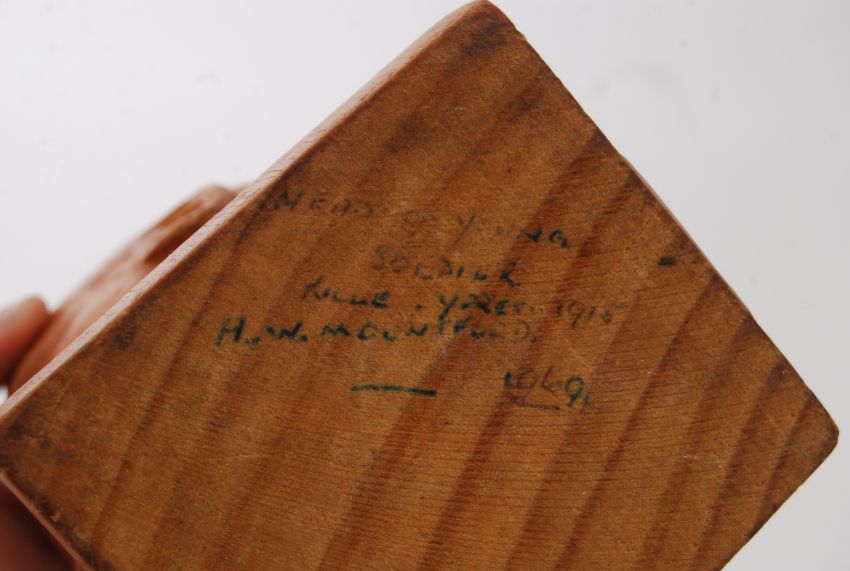 HEAD OF YOUNG
SOLDIER
KILLE. YPRES. 1915
H.W. MOUNTFORD.
1969.